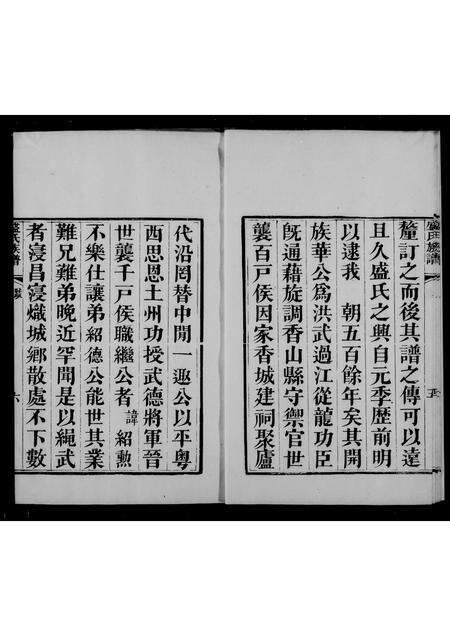 盛氏族譜
釐訂之而後其譜之傳可以遠
且久盛氏之興自元季歷前明
以逮我　朝五百餘年矣其開
族華公為洪武過江從龍功臣
既通藉旋調香山縣守禦官世
襲百戶侯因家香城建祠聚廬
代沿罔替中閒一趣公以平粤
西思恩土州功授武德將軍晉
世襲千戶侯職繼公者諱紹勲
不樂仕讓弟紹德公能世其業
難兄難弟晚近罕聞是以繩武
者寖昌寖熾城鄉散處不下數
盛氏族譜
六